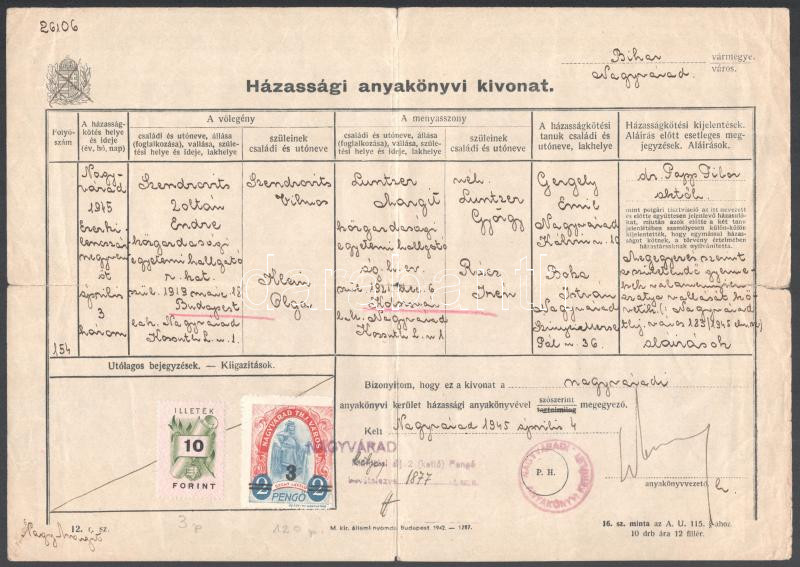 26106
Bihar vármegye.
Nagyvárad város.
Házassági anyakönyvi kivonat.
Folyó-
szám
A házasság-
kötés helye
és ideje
(év, hó, nap)
A vőlegény
családi és utóneve, állása
(foglalkozása), vallása, szüle-
tési helye és ideje, lakhelye
szüleinek
családi és utóneve
A menyasszony
családi és utóneve, állása
(foglalkozása), vallása, szüle-
tési helye és ideje, lakhelye
szüleinek
családi és utóneve
A házasságkötési
tanuk családi és
utóneve, lakhelye
Házasságkötési kijelentések.
Aláírás előtt esetleges meg-
jegyzések. Aláírások.
154
Nagy-
várad
1945
Ezerki-
lencszáz
negyven
öt
április
3
három
Szendrovits
Zoltán
Endre
közgazdasági
egyetemi hallgató
r. kat.
Budapest
lak. Nagyvárad
Kossuth L. u. 1
Szendrovits
Vilmos
Klein
Olga
Luntzer
Margit
közgazdasági
egyetemi hallgató
ág. h. ev.
szül. 1921 dec. 6
Kolozsvár
lak. Nagyvárad
Kossuth L. u 1
néh.
Luntzer
György
Rácz
Irén
Gergely
Emil
Nagyvárad
Kálvin u. 10
Boha
István
Nagyvárad
Pál u. 36.
dr. Papp Tibor
mint polgári tisztviselő az itt nevezett
és előtte együttesen jelenlevő házasuló-
kat, miután azok előtte a két tanú
jelenlétében személyesen külön-külön
kijelentették, hogy egymással házas-
ságot kötnek, a törvény értelmében
házastársaknak nyilvánította.
Megegyezés szerint
a születendő gyerme-
kek valamennyien
atyja vallását kö-
vetik.
aláírások
Utólagos bejegyzések. — Kiigazítások.
ILLETÉK
10
FORINT
NAGYVÁRAD THJ. VÁROS
3
2 2
PENGŐ
NAGYVÁRAD
díj 2 (kettő) Pengő
1877
Bizonyítom, hogy ez a kivonat a nagyváradi
anyakönyvi kerület házassági anyakönyvével szószerint megegyező.
tartalmilag
Kelt Nagyvárad 1945 április 4
P. H.
anyakönyvvezető.
12. r. sz.
Nagy Margit
3 p
120 p.
M. kir. állami nyomda, Budapest 1942. — 1287.
16. sz. minta az A. U. 115. §-ához.
10 drb ára 12 fillér.